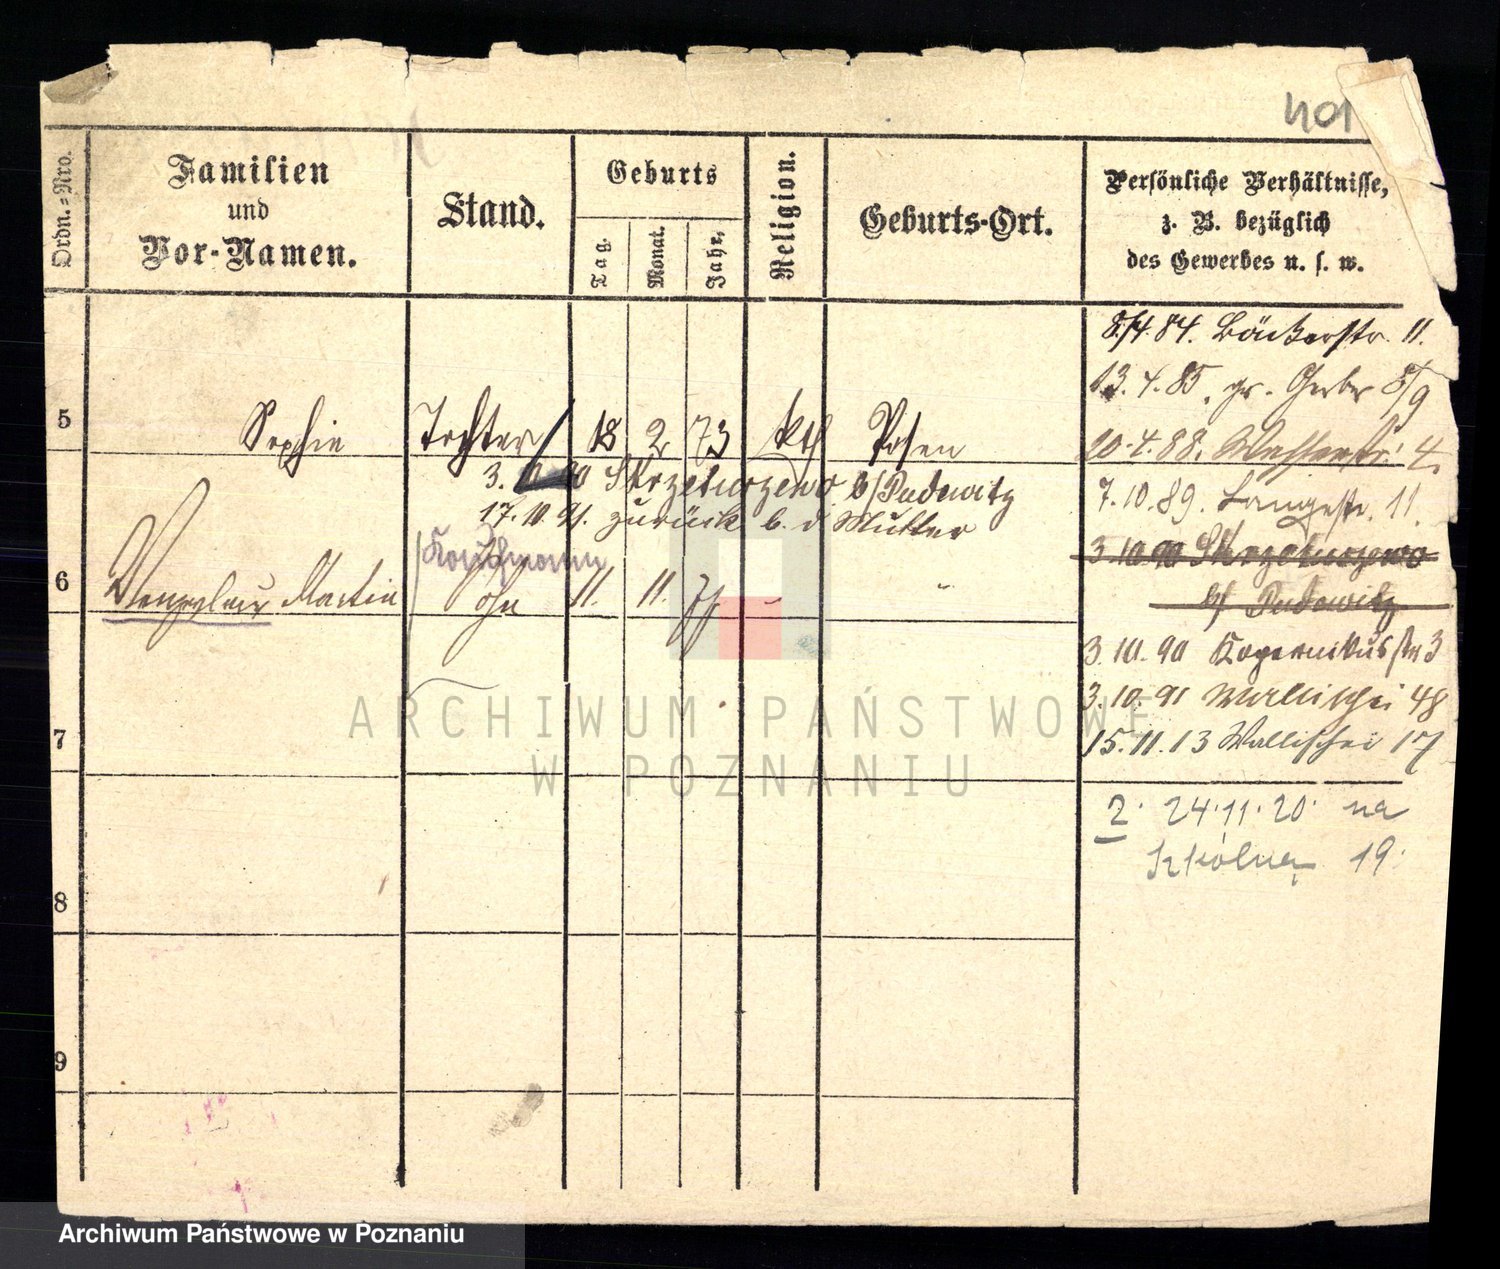 401
Ordn.=Nro.
Familien
und
Vor-Namen.
Stand.
Geburts
Tag.
Monat.
Jahr.
Religion.
Geburts-Ort.
Persönliche Verhältnisse,
z. B. bezüglich
des Gewerbes u. s. w.
8/4. 84. Bäckerstr. 11.
13. 4. 85. gr. Gerber 8/9
5 Sophie Tochter 18 2 73 kth Posen
20. 4. 88. 4.
3. 10 90 Skrzetuszewo b/Pudewitz
7. 10. 89. Langestr. 11.
17. 10. 91. zurück b. d Mutter
3. 10 90 Skrzetuszewo
b/ Pudewitz
Kaufmann
6 Martin Sohn 11. 11. 77 - "
3. 10. 90 Kopernikusstr 3
3. 10. 91 Wallischei 48
7
15. 11. 13 Wallischei 17
2. 24.11.20. na
Szkolną 19.
8
9
ARCHIWUM PAŃSTWOWE
W POZNANIU
Archiwum Państwowe w Poznaniu